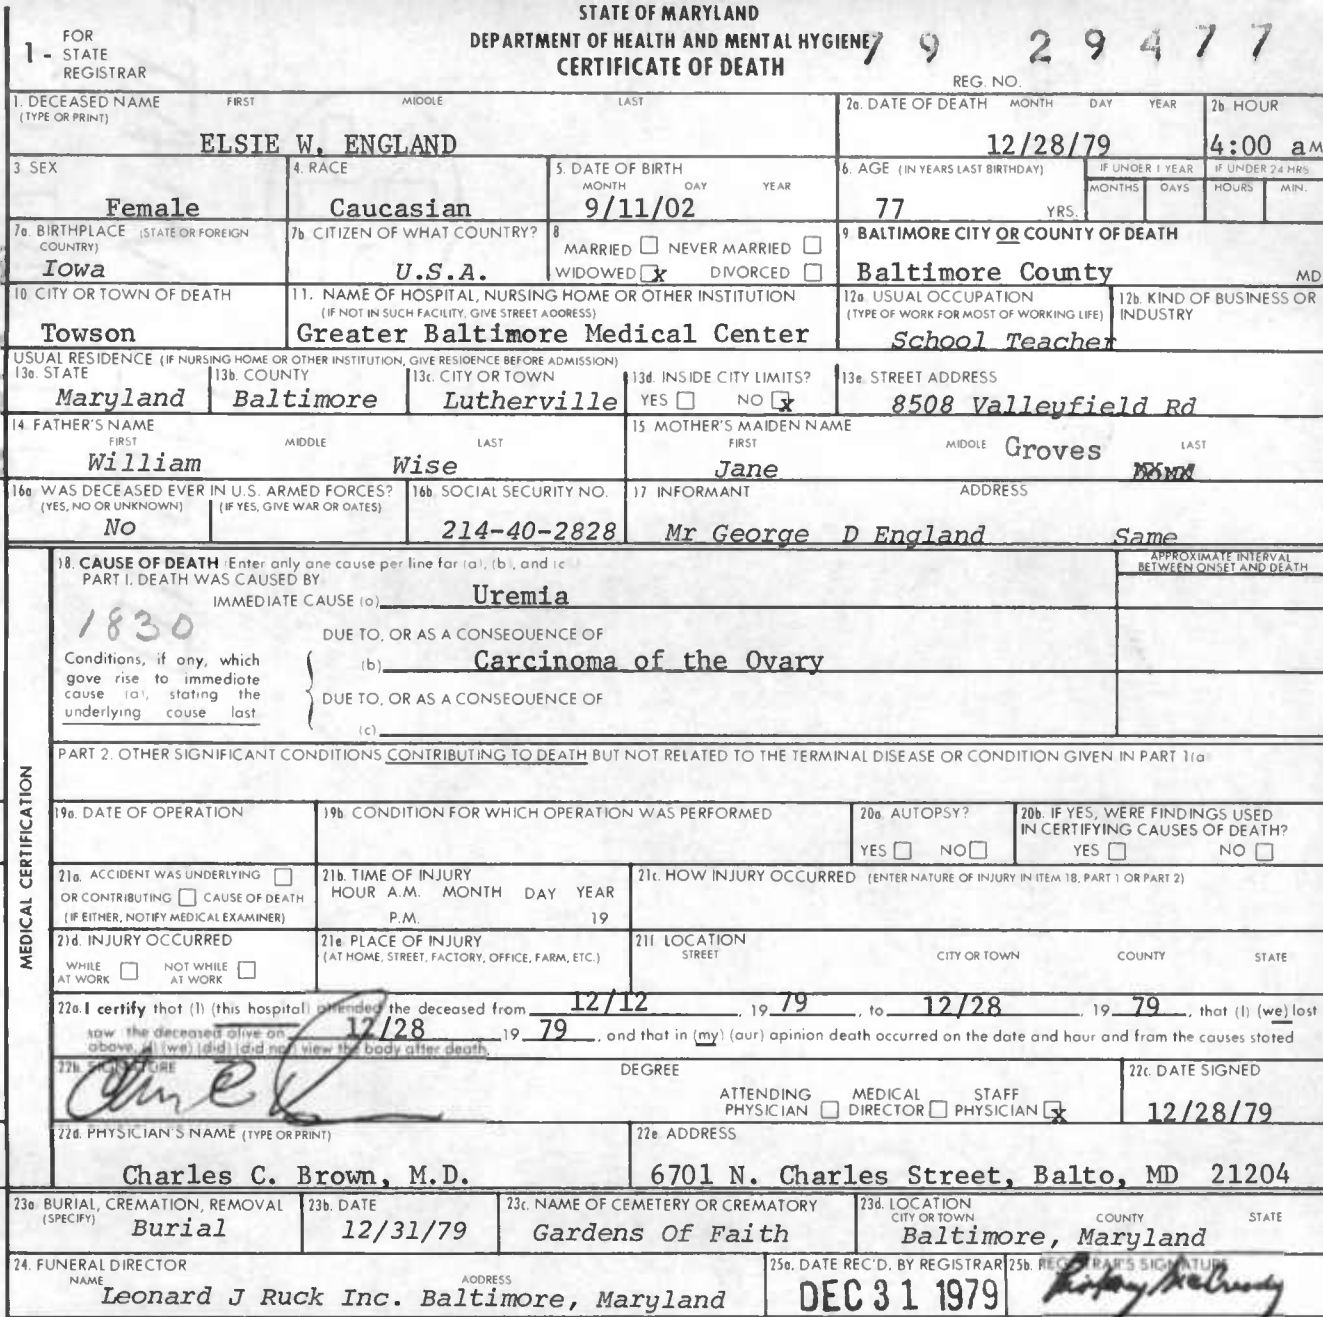 STATE OF MARYLAND
1 - FOR STATE REGISTRAR
DEPARTMENT OF HEALTH AND MENTAL HYGIENE
79 29477
CERTIFICATE OF DEATH
REG. NO.
1. DECEASED NAME (TYPE OR PRINT) FIRST MIDDLE LAST
ELSIE W. ENGLAND
2a. DATE OF DEATH MONTH DAY YEAR
12/28/79
2b. HOUR
4:00 a M
3. SEX
Female
4. RACE
Caucasian
5. DATE OF BIRTH MONTH DAY YEAR
9/11/02
6. AGE (IN YEARS LAST BIRTHDAY)
77 YRS.
IF UNDER 1 YEAR MONTHS DAYS
IF UNDER 24 HRS HOURS MIN.
7a. BIRTHPLACE (STATE OR FOREIGN COUNTRY)
Iowa
7b. CITIZEN OF WHAT COUNTRY?
U.S.A.
8 MARRIED NEVER MARRIED
WIDOWED x DIVORCED
9. BALTIMORE CITY OR COUNTY OF DEATH
Baltimore County MD
10. CITY OR TOWN OF DEATH
Towson
11. NAME OF HOSPITAL, NURSING HOME OR OTHER INSTITUTION
(IF NOT IN SUCH FACILITY, GIVE STREET ADDRESS)
Greater Baltimore Medical Center
12a. USUAL OCCUPATION (TYPE OF WORK FOR MOST OF WORKING LIFE)
School Teacher
12b. KIND OF BUSINESS OR INDUSTRY
USUAL RESIDENCE (IF NURSING HOME OR OTHER INSTITUTION, GIVE RESIDENCE BEFORE ADMISSION)
13a. STATE
Maryland
13b. COUNTY
Baltimore
13c. CITY OR TOWN
Lutherville
13d. INSIDE CITY LIMITS?
YES NO x
13e. STREET ADDRESS
8508 Valleyfield Rd
14. FATHER'S NAME FIRST MIDDLE LAST
William Wise
15. MOTHER'S MAIDEN NAME FIRST MIDDLE LAST
Jane Groves
16a. WAS DECEASED EVER IN U.S. ARMED FORCES?
(YES, NO OR UNKNOWN) (IF YES, GIVE WAR OR DATES)
No
16b. SOCIAL SECURITY NO.
214-40-2828
17. INFORMANT ADDRESS
Mr George D England Same
MEDICAL CERTIFICATION
18. CAUSE OF DEATH (Enter only one cause per line for (a), (b), and (c)
APPROXIMATE INTERVAL BETWEEN ONSET AND DEATH
PART I. DEATH WAS CAUSED BY
IMMEDIATE CAUSE (a) Uremia
1830
DUE TO, OR AS A CONSEQUENCE OF
Conditions, if any, which gave rise to immediate cause (a), stating the underlying cause last
(b) Carcinoma of the Ovary
DUE TO, OR AS A CONSEQUENCE OF
(c)
PART 2. OTHER SIGNIFICANT CONDITIONS CONTRIBUTING TO DEATH BUT NOT RELATED TO THE TERMINAL DISEASE OR CONDITION GIVEN IN PART 1(a)
19a. DATE OF OPERATION
19b. CONDITION FOR WHICH OPERATION WAS PERFORMED
20a. AUTOPSY?
YES NO
20b. IF YES, WERE FINDINGS USED IN CERTIFYING CAUSES OF DEATH?
YES NO
21a. ACCIDENT WAS UNDERLYING
OR CONTRIBUTING CAUSE OF DEATH
(IF EITHER, NOTIFY MEDICAL EXAMINER)
21b. TIME OF INJURY
HOUR A.M. MONTH DAY YEAR
P.M. 19
21c. HOW INJURY OCCURRED (ENTER NATURE OF INJURY IN ITEM 18, PART 1 OR PART 2)
21d. INJURY OCCURRED
WHILE AT WORK NOT WHILE AT WORK
21e. PLACE OF INJURY
(AT HOME, STREET, FACTORY, OFFICE, FARM, ETC.)
21f. LOCATION
STREET CITY OR TOWN COUNTY STATE
22a. I certify that (I) (this hospital) attended the deceased from 12/12 19 79, to 12/28 19 79, that (I) (we) last
saw the deceased alive on 12/28 19 79, and that in (my) (our) opinion death occurred on the date and hour and from the causes stated
above. (I) (we) (did) (did not) view the body after death.
22b. SIGNATURE DEGREE
ATTENDING PHYSICIAN MEDICAL DIRECTOR STAFF PHYSICIAN x
22c. DATE SIGNED
12/28/79
22d. PHYSICIAN'S NAME (TYPE OR PRINT)
Charles C. Brown, M.D.
22e. ADDRESS
6701 N. Charles Street, Balto, MD 21204
23a. BURIAL, CREMATION, REMOVAL (SPECIFY)
Burial
23b. DATE
12/31/79
23c. NAME OF CEMETERY OR CREMATORY
Gardens Of Faith
23d. LOCATION CITY OR TOWN COUNTY STATE
Baltimore, Maryland
24. FUNERAL DIRECTOR
NAME ADDRESS
Leonard J Ruck Inc. Baltimore, Maryland
25a. DATE REC'D. BY REGISTRAR
DEC 31 1979
25b. REGISTRAR'S SIGNATURE